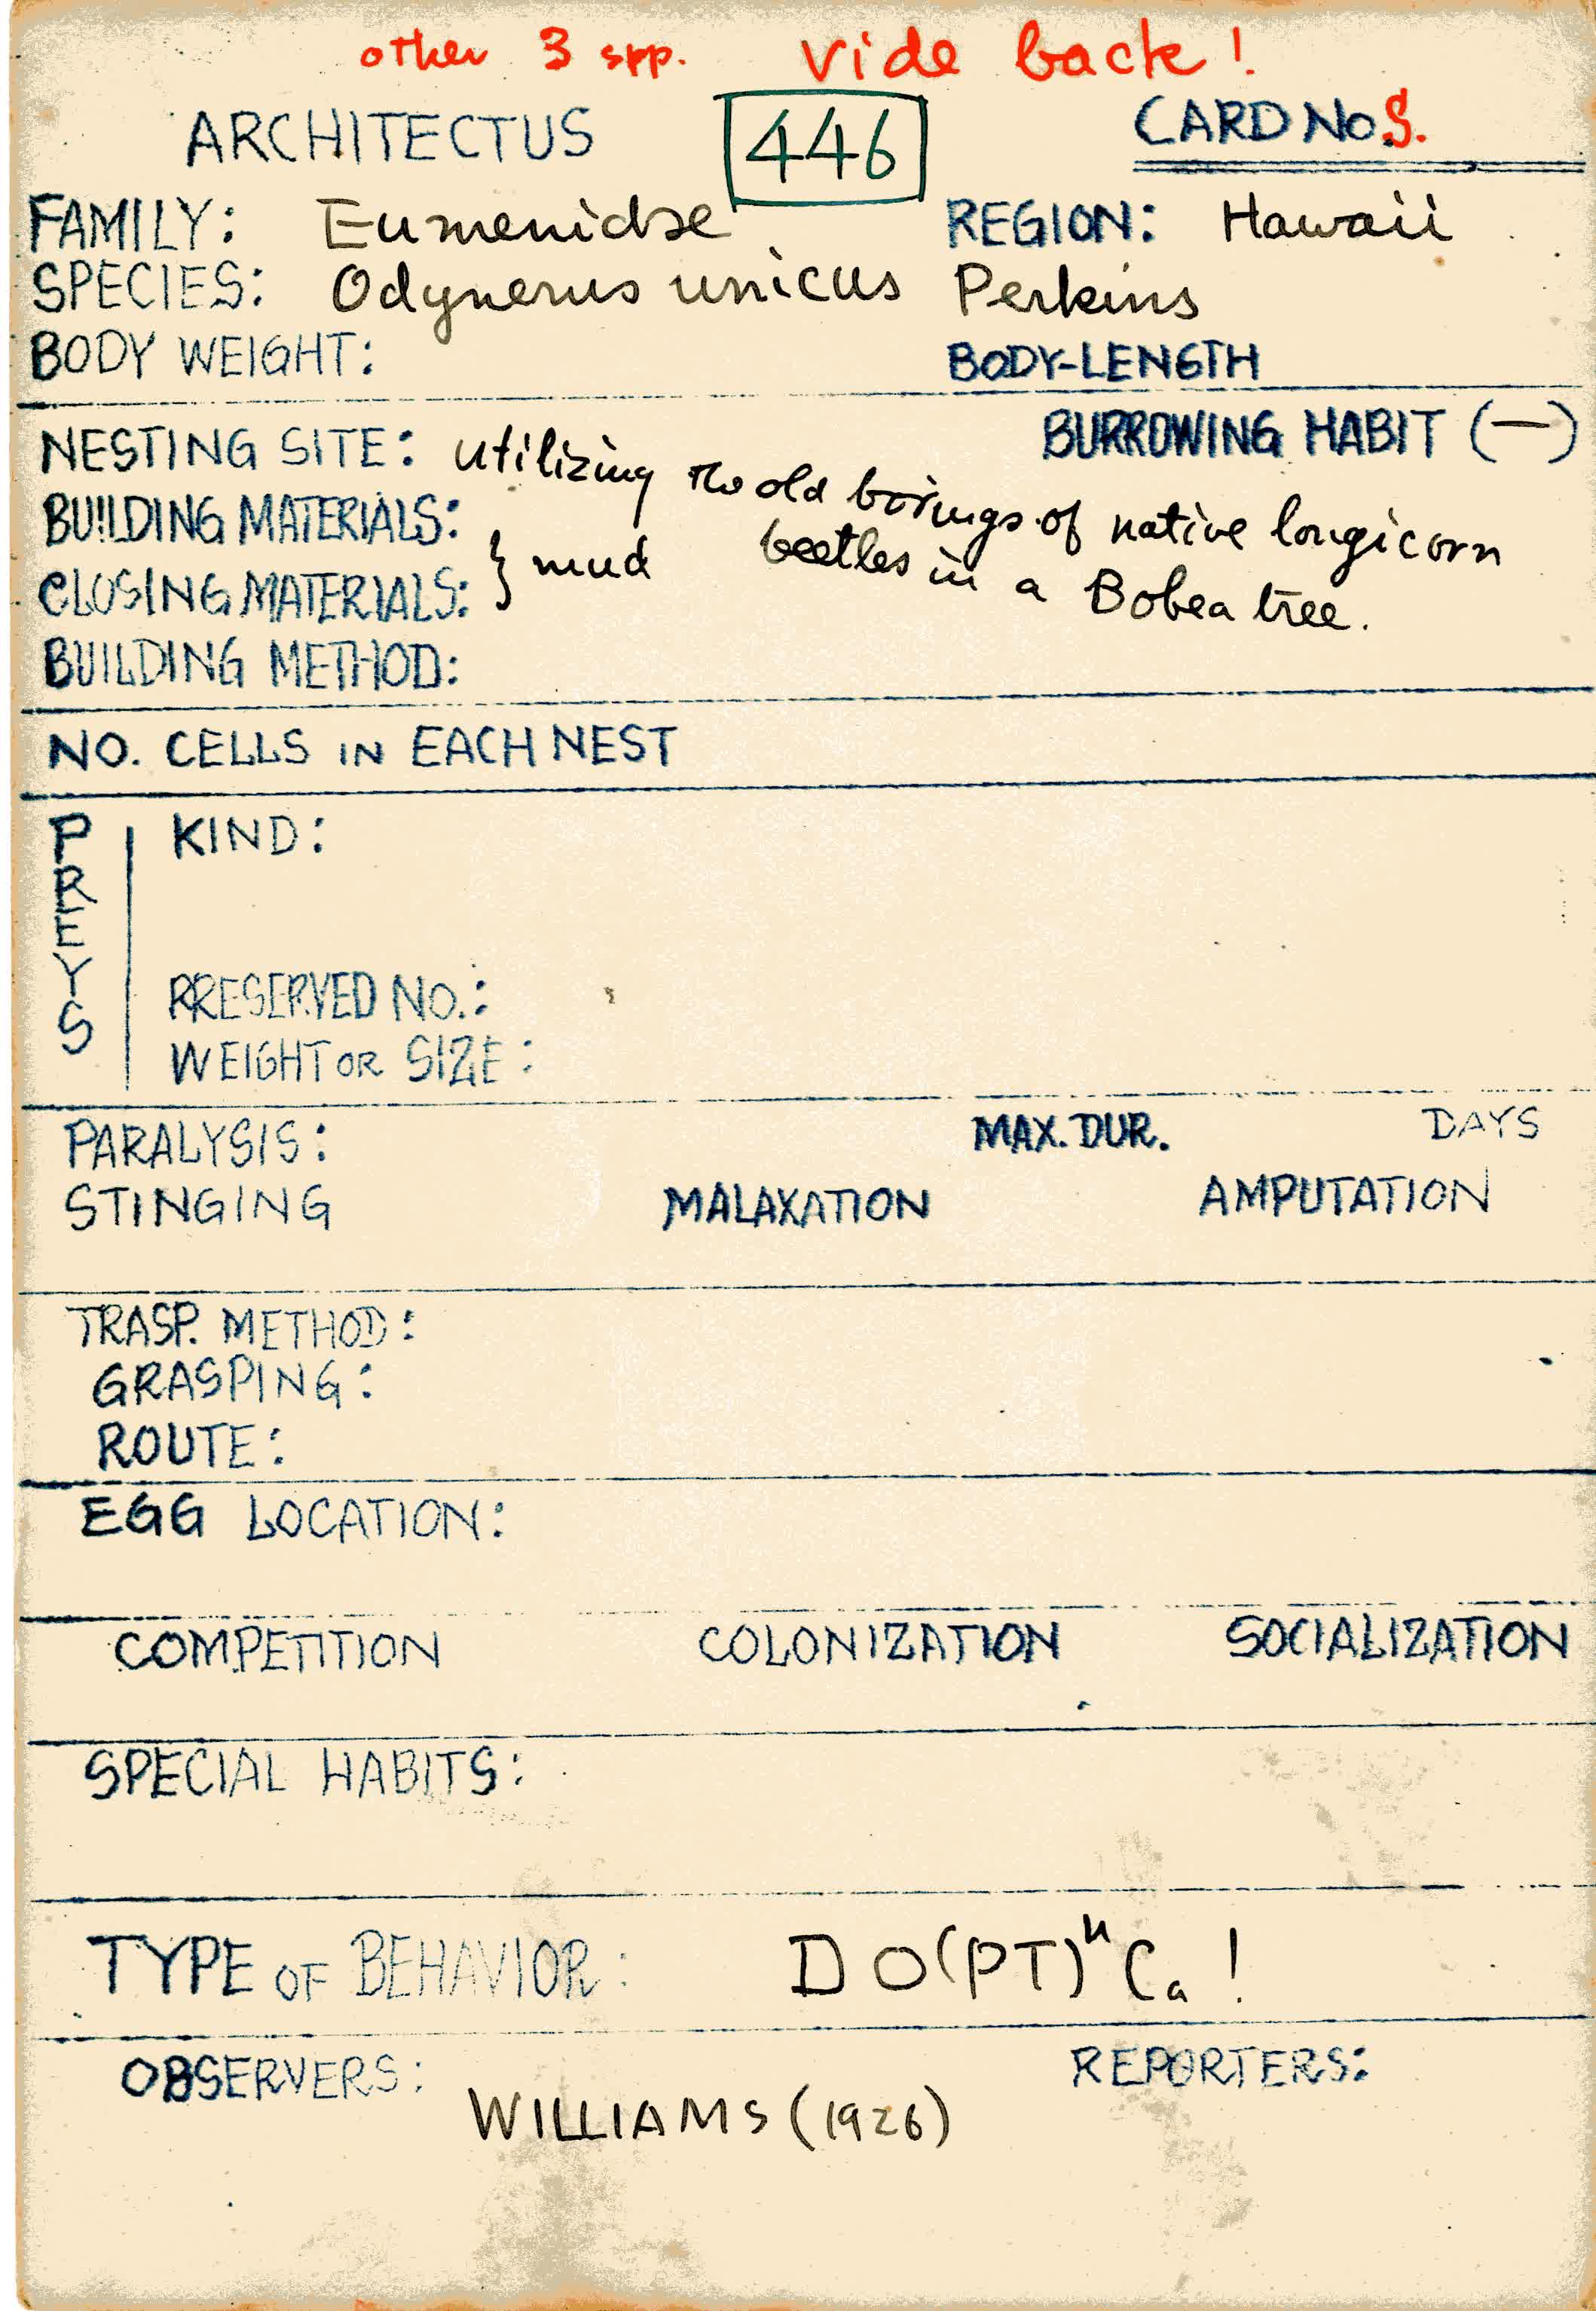 other 3 spp. vide back!
ARCHITECTUS 446 CARD NoS.
FAMILY: Eumenidae REGION: Hawaii
SPECIES: Odynerus unicus Perkins
BODY WEIGHT: BODY-LENGTH
BURROWING HABIT (—)
NESTING SITE: utilizing the old borings of native longicorn
beetles in a Bobea tree.
BUILDING MATERIALS:
} mud
CLOSING MATERIALS:
BUILDING METHOD:
NO. CELLS IN EACH NEST
PREYS
KIND:
PRESERVED NO.:
WEIGHT OR SIZE:
PARALYSIS: MAX. DUR. DAYS
STINGING MALAXATION AMPUTATION
TRASP. METHOD:
GRASPING:
ROUTE:
EGG LOCATION:
COMPETITION COLONIZATION SOCIALIZATION
SPECIAL HABITS:
TYPE OF BEHAVIOR: DO(PT)ⁿCa!
OBSERVERS: REPORTERS:
WILLIAMS (1926)